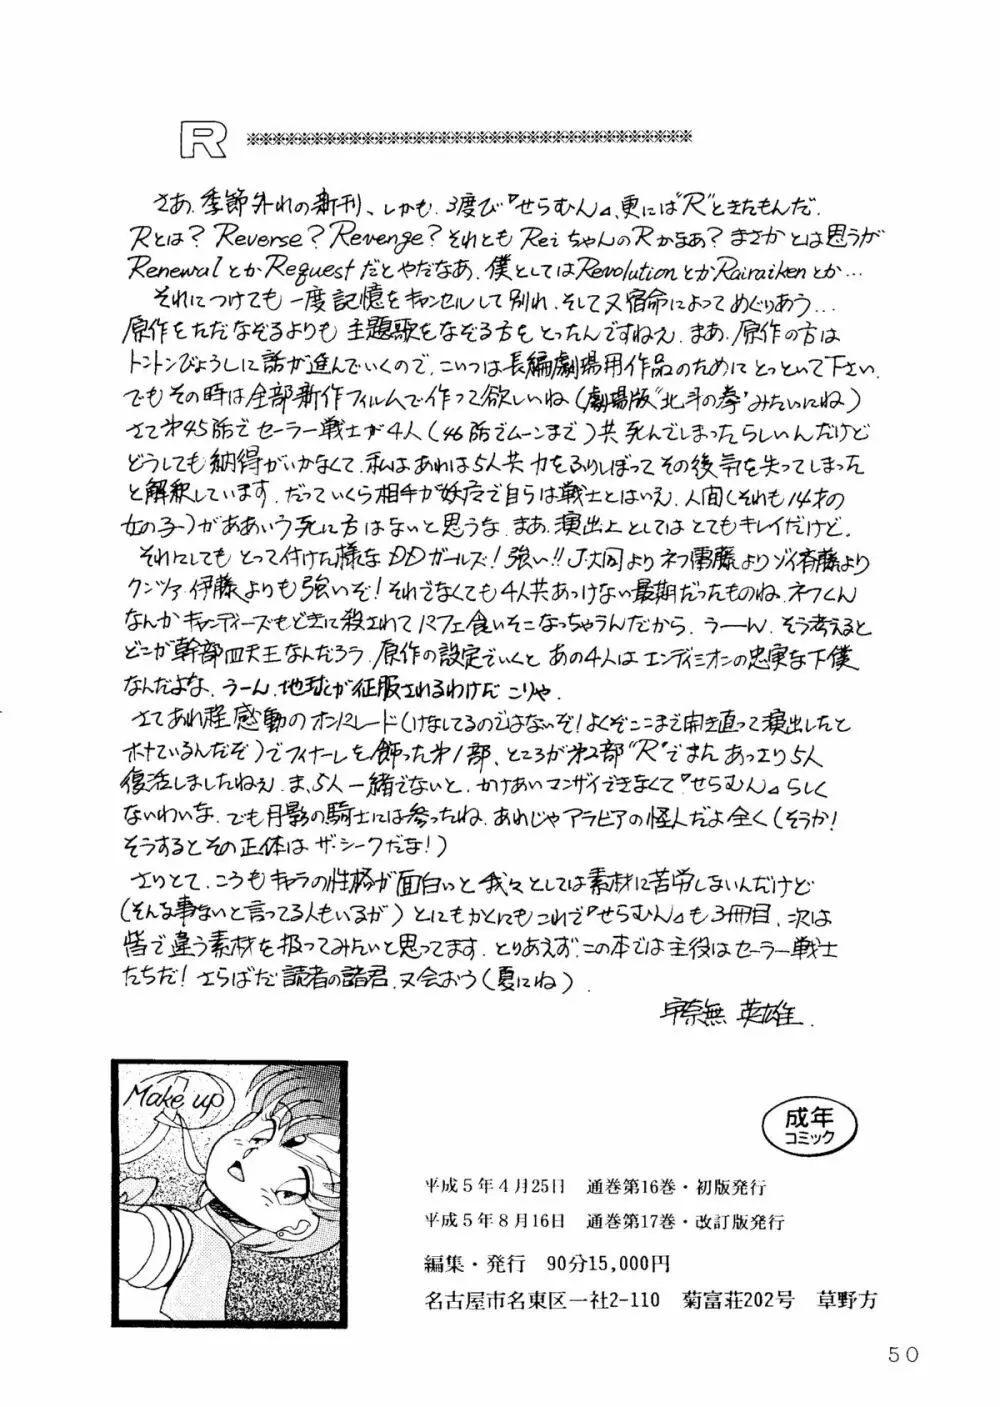 R
さあ、季節外れの新刊、しかも、3度び『せらむん』、更には"R"ときたもんだ。
Rとは? Reverse? Revenge? それとも Reiちゃんの Rかなあ? まさかとは思うが
Renewalとか Request だとやだなあ、僕としては Revolutionとか Rairaikenとか…
それにつけても 一度記憶をキャンセルして別れ、そして又宿命によってめぐりあう…
原作をただなぞるよりも 主題歌をなぞる方を とったんですねえ。まあ、原作の方は
トントンびょうしに話が進んでいくので、こいつは長編劇場用作品のためにとっといて下さい。
でもその時は全部新作フィルムで作って欲しいね(劇場版"北斗の拳"みたいにね)
さて才45話で セーラー戦士が4人(46話でムーンまで)共 死んでしまったらしいんだけど
どうしても 納得がいかなくて、私はあれは5人共 力をふりしぼって その後 気を失ってしまった
と解釈しています。だっていくら相手が妖魔で自らは戦士とはいえ、人間(それも14才の
女の子)が ああいう 死に方はないと思うな。まあ、演出上としてはとてもキレイだけど。
それにしても とって付けた様な DDガールズ! 強い!! J・大同より ネフ雷藤より ゾイ斉藤より
クンツァ伊藤よりも強いぞ! それでなくても4人共 あっけない最期だったものね。ネフくん
なんか キャンディーズもどきに殺されて パフェ食いそこなっちゃうんだから、うーん、そう考えると
どこが幹部四天王なんだろう。原作の設定でいくと あの4人は エンディミオンの忠実な下僕
なんだよな、うーん、地球が征服されるわけだ こりゃ。
さてあれ程感動のオンパレード(けなしてるのではないぞ! よくぞここまで開き直って演出したと
ホメているんだぞ)でフィナーレを飾った才1部、ところが才2部"R"でまた あっさり5人
復活しましたねえ。ま、5人一緒でないと、かけあいマンザイできなくて『せらむん』らしく
ないわいな。でも月影の騎士には参ったね、あれじゃアラビアの怪人だよ全く(そうか!
そうするとその正体は ザ・シークだな!)
さりとて、こうもキャラの性格が面白いと 我々としては素材に苦労しないんだけど
(そんな事ないと言ってる人もいるが)とにもかくにもこれで『せらむん』も3冊目、次は
皆で違う素材を扱ってみたいと思ってます。とりあえず、この本では主役はセーラー戦士
たちだ! さらばだ読者の諸君、又会おう(夏にね)。
宇奈無 英雄.
Make up
成年
コミック
平成5年4月25日 通巻第16巻・初版発行
平成5年8月16日 通巻第17巻・改訂版発行
編集・発行 90分15,000円
名古屋市名東区一社2-110 菊富荘202号 草野方
50